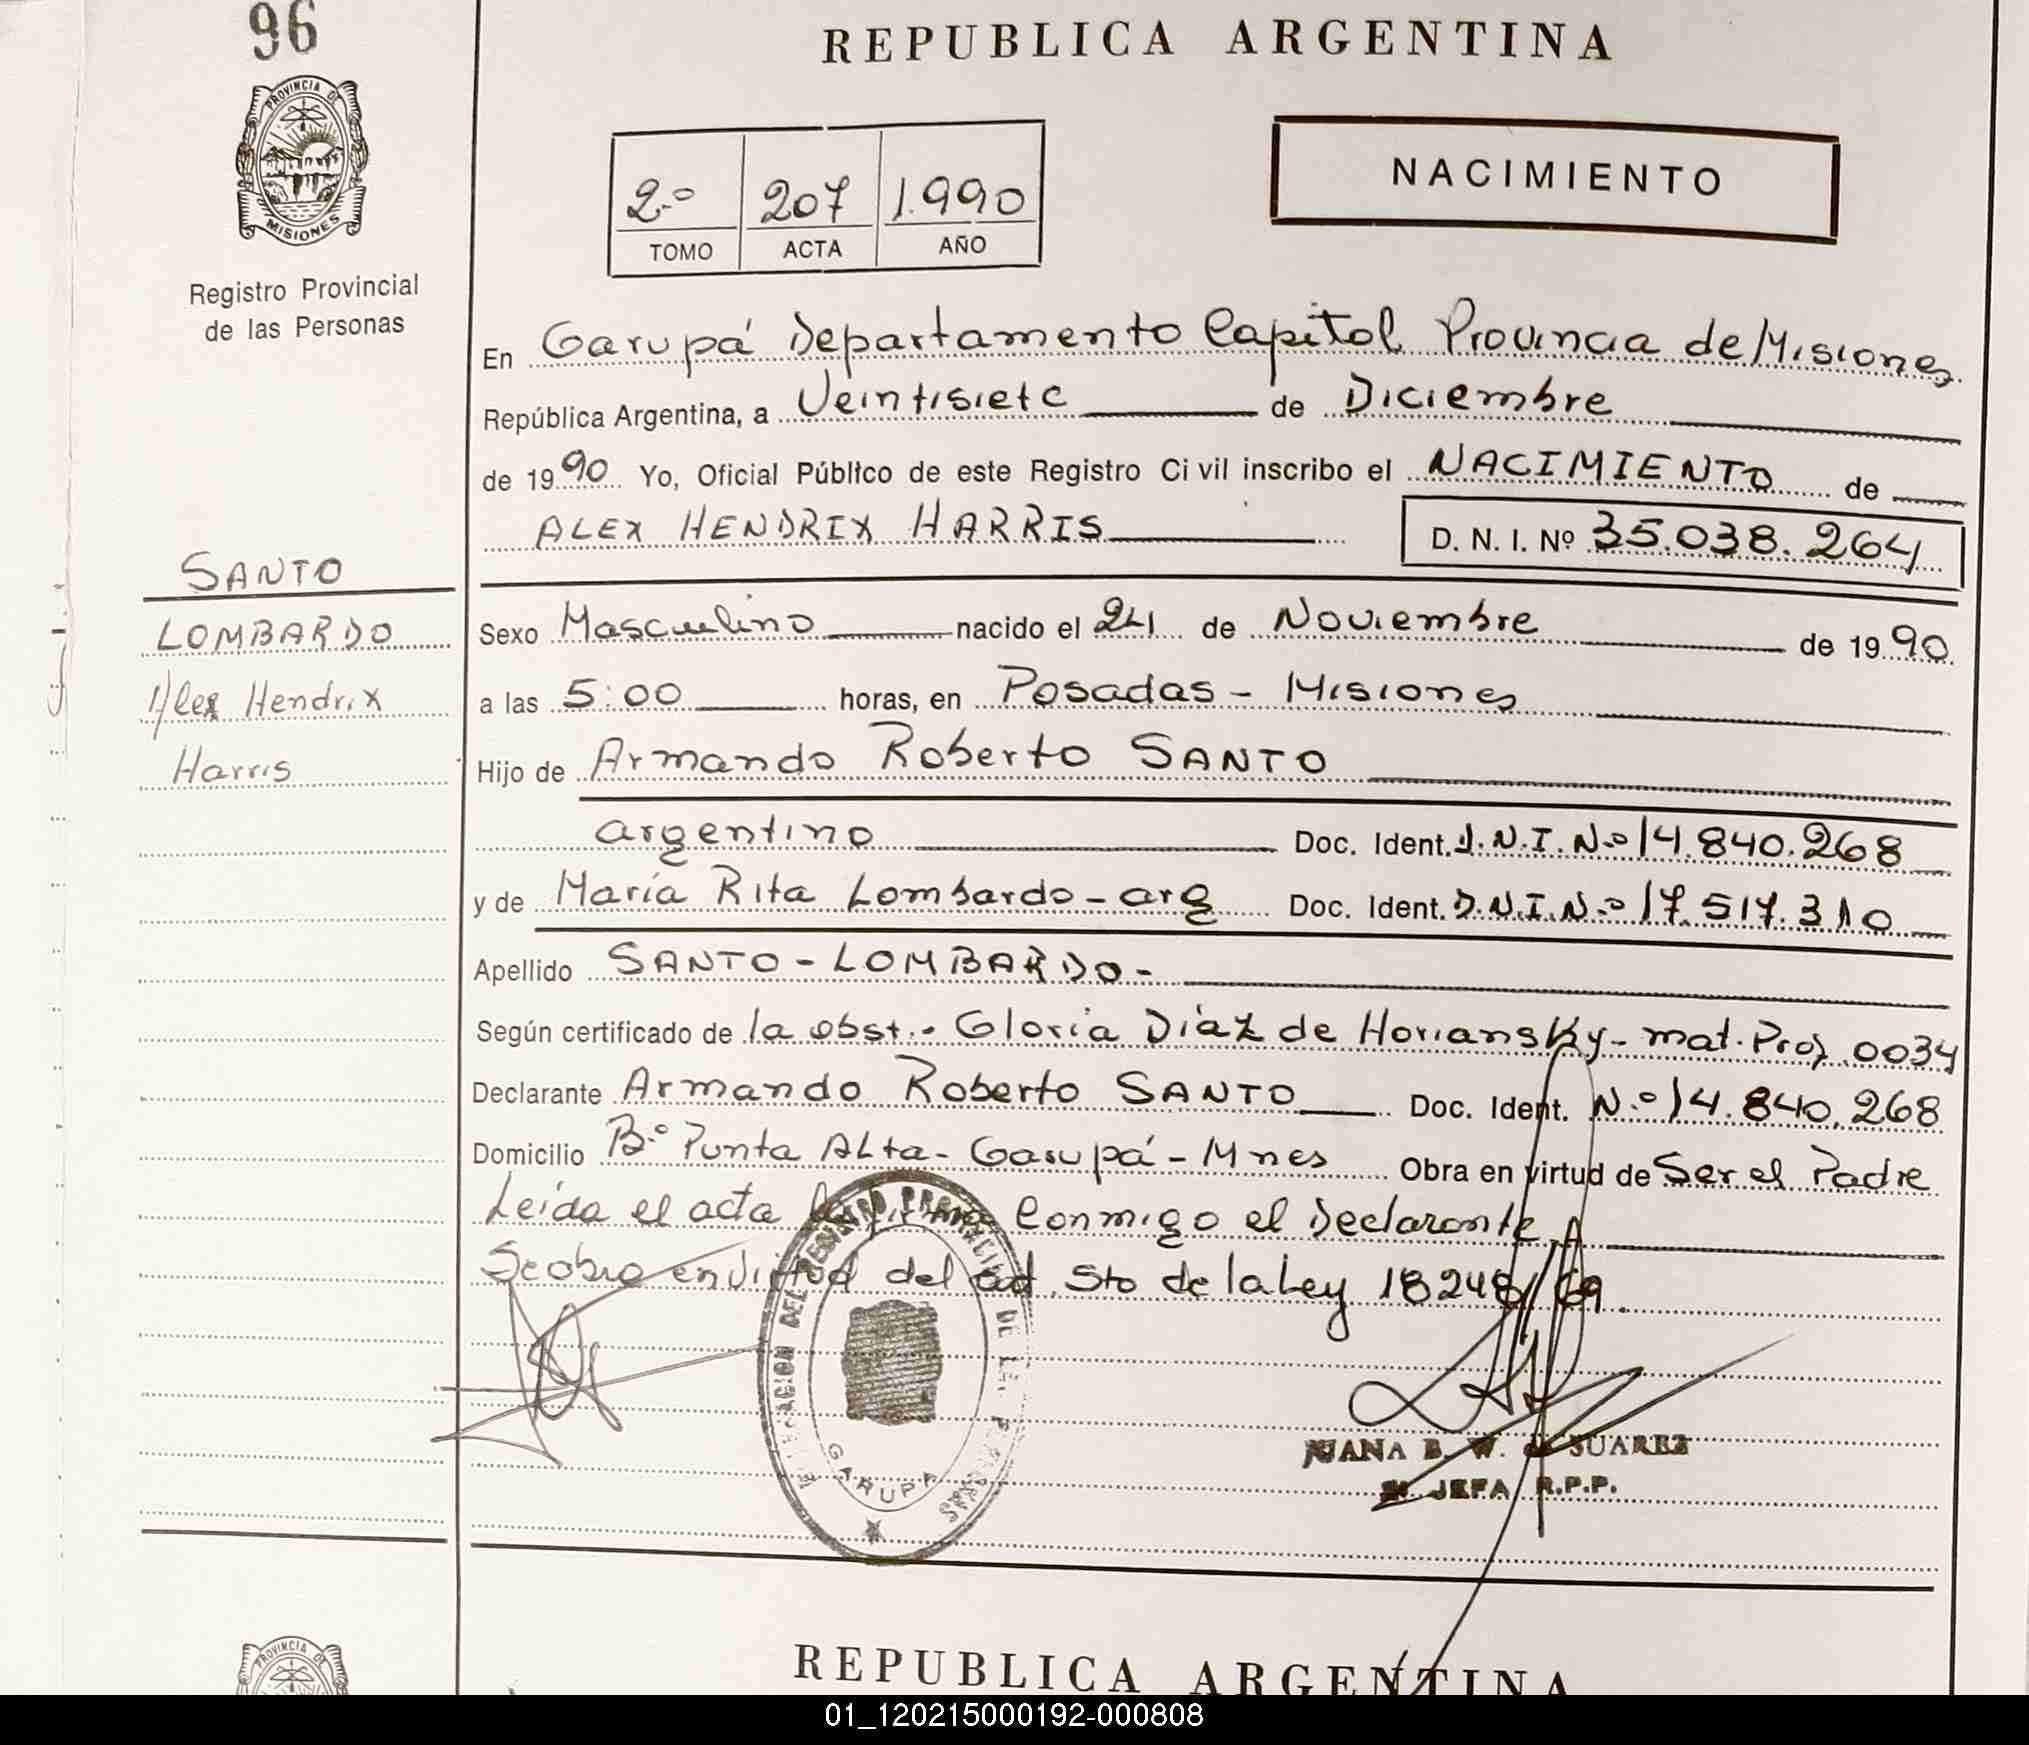 96
PROVINCIA DE
MISIONES
Registro Provincial
de las Personas
REPUBLICA ARGENTINA
2º 207 1.990
TOMO ACTA AÑO
NACIMIENTO
En Garupá Departamento Capital Provincia de Misiones
República Argentina, a Veintisiete de Diciembre
de 1990 Yo, Oficial Público de este Registro Civil inscribo el NACIMIENTO de
ALEX HENDRIX HARRIS D. N. I. Nº 35.038.264
SANTO
LOMBARDO
Alex Hendrix
Harris
Sexo Masculino nacido el 24 de Noviembre de 1990
a las 5:00 horas, en Posadas - Misiones
Hijo de Armando Roberto SANTO
argentino Doc. Ident. D.N.I.Nº 14.840.268
y de María Rita Lombardo - arg Doc. Ident. D.N.I.Nº 17.517.310
Apellido SANTO - LOMBARDO -
Según certificado de la obst.- Gloria Diaz de Horiansky - mat. Prof. 0034
Declarante Armando Roberto SANTO Doc. Ident. Nº 14.840.268
Domicilio Bº Punta Alta - Garupá - Mnes Obra en virtud de Ser el Padre
Leida el acta la firma Conmigo el Declarante
Se obra en virtud del art. 5to de la Ley 18248/69.
DELEGACION DEL REGISTRO PROVINCIAL DE LAS PERSONAS
GARUPA
JUANA B. W. de SUAREZ
JEFA R.P.P.
PROVINCIA DE
REPUBLICA ARGENTINA
01_120215000192-000808